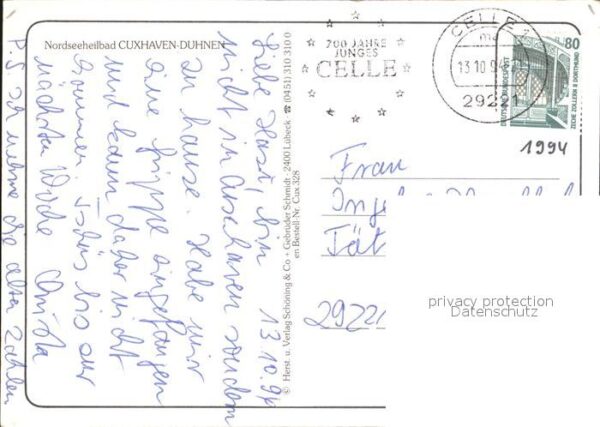 Nordseeheilbad CUXHAVEN-DUHNEN
13.10.94
Liebe Hasi, bin
nicht in Cuxhaven sondern
zu hause. Habe mir
eine Grippe eingefangen
und kann daher nicht
kommen. Tschüs bis zur
nächsten Woche Christa
P.S. Ich nehme die alten Zahlen
© Herst. u. Verlag Schöning & Co + Gebrüder Schmidt · 2400 Lübeck · ☎ (0451) 310 310 0
en Bestell-Nr. Cux 328
700 JAHRE
JUNGES
CELLE
CELLE 1
13.10.94
29221
80
DEUTSCHE BUNDESPOST
ZECHE ZOLLERN II DORTMUND
1994
Frau
Inge
Tät
29221
privacy protection
Datenschutz